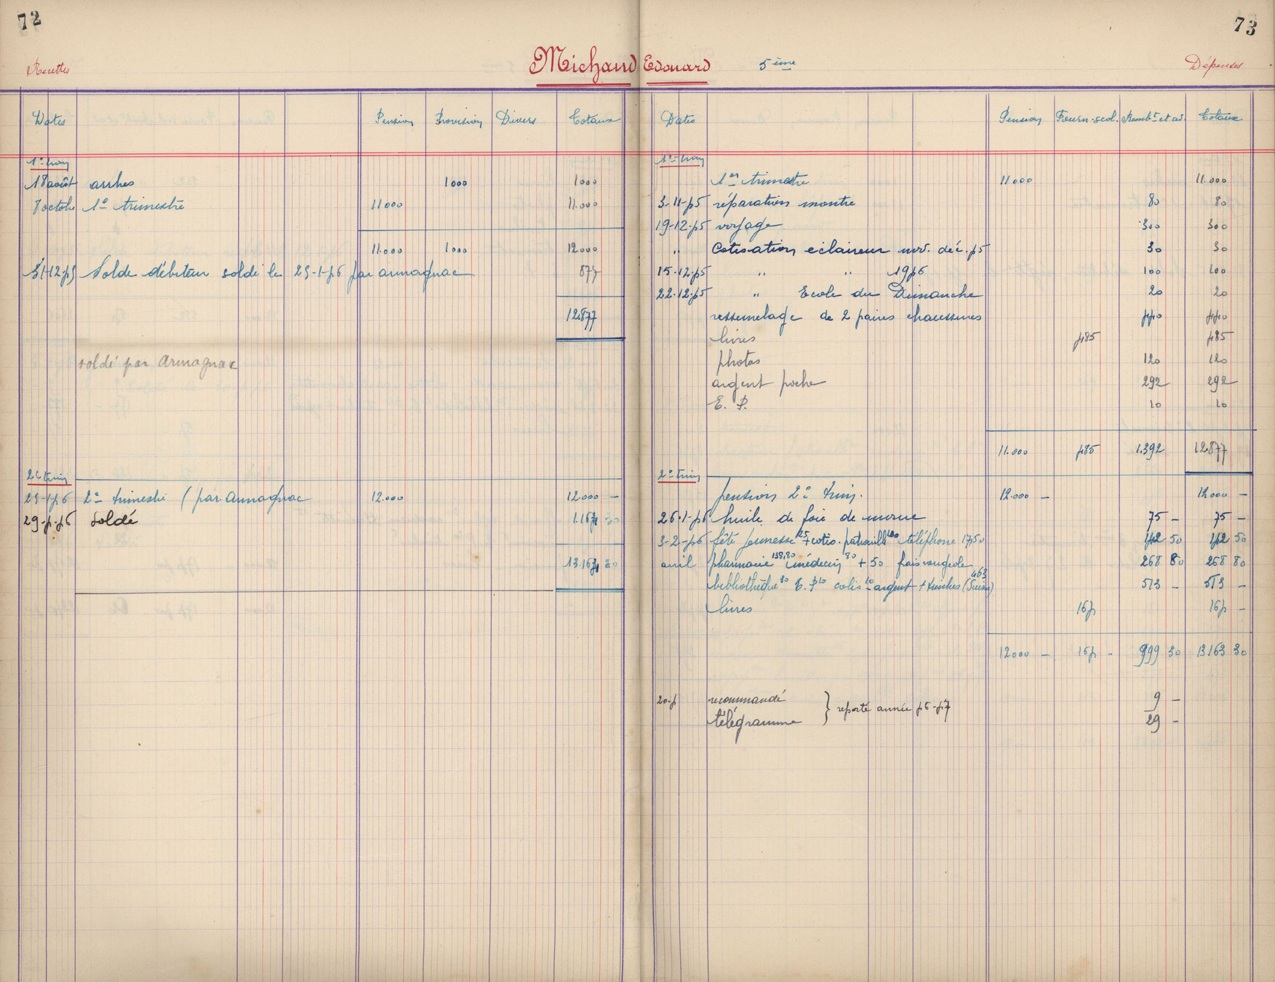 72
73
Recettes
Michaud Edouard 5ème
Dépenses
Dates Pension Provision Divers Totaux
1er trim
18 août arrhes 1000 1000
7 octob 1e trimestre 11.000 11.000
11.000 1000 12000
31-12-55 Solde débiteur soldé le 25-1-56 par Armagnac 877
12.877
soldé par Armagnac
2e trim
25-1-56 2e trimestre (par Armagnac 12.000 12.000 -
29-5-56 Soldé 1.163 30
13.163 30
Dates Pension Fourn. scol. Rembts et av. Totaux
1er trim
1er trimestre 11.000 11.000
3-11-55 réparations montre 80 80
19-12-55 voyage 300 300
" Cotisation eclaireur nov. déc. 55 30 30
15-12-55 " " 1956 100 100
22-12-55 " Ecole du Dimanche 20 20
ressemelage de 2 paires chaussures 440 440
livres 485 485
photos 120 120
argent poche 292 292
E. P. 10 10
11.000 485 1.392 12.877
2e trim
pension 2e trim. 12.000 - 12.000 -
26-1-56 huile de foie de morue 75 - 75 -
3-2-56 fête jeunesse 25 + cotis. patrouille 100 téléphone 17,50 142 50 142 50
avril pharmacie 138,80 médecin 80 + 50 frais 268 80 268 80
bibliothèque 10 E. P 10 colis argent + timbres 463 (Suisse) 513 - 513 -
livres 164 164 -
12.000 - 164 - 999 30 13.163 30
20-5 recommandé 9 -
télégramme } reporté année 56-57 29 -